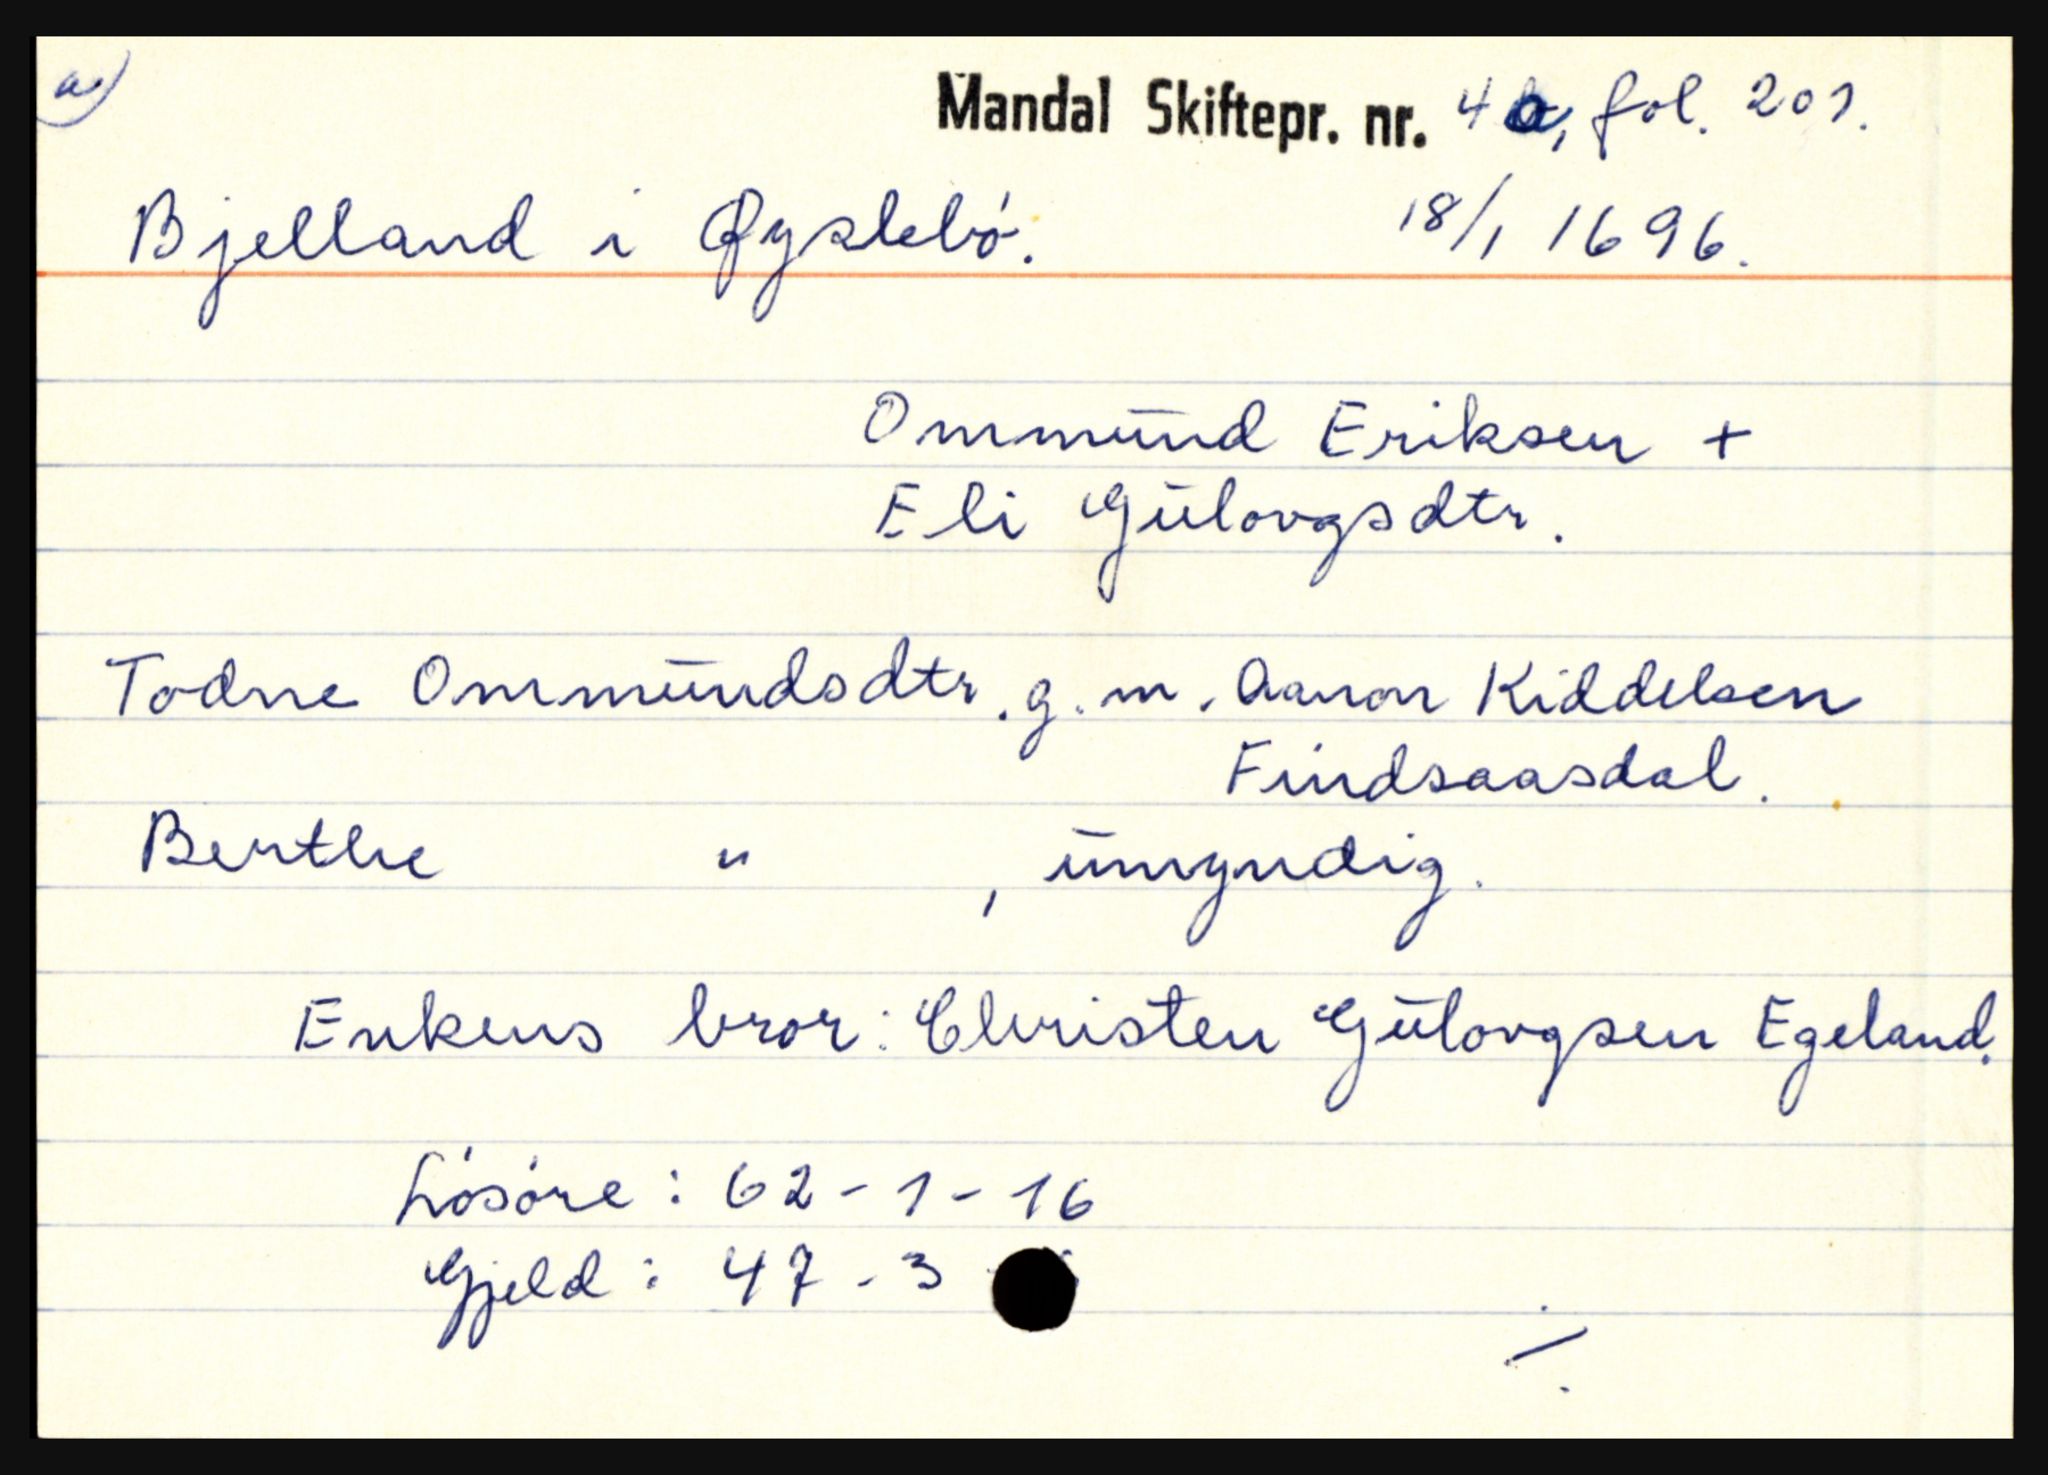 a)
Mandal Skiftepr. nr. 4 a, fol. 201.
Bjelland i Øyslebö. 18/1 1696.
Ommund Eriksen +
Eli Gulovgsdtr.
Todne Ommundsdtr. g. m. Aanon Kiddelsen
Findsaasdal.
Berthe " , umyndig.
Enkens bror: Christen Gulovgsen Egeland.
Lösöre : 62 - 1 - 16
Gjeld : 47 - 3 -